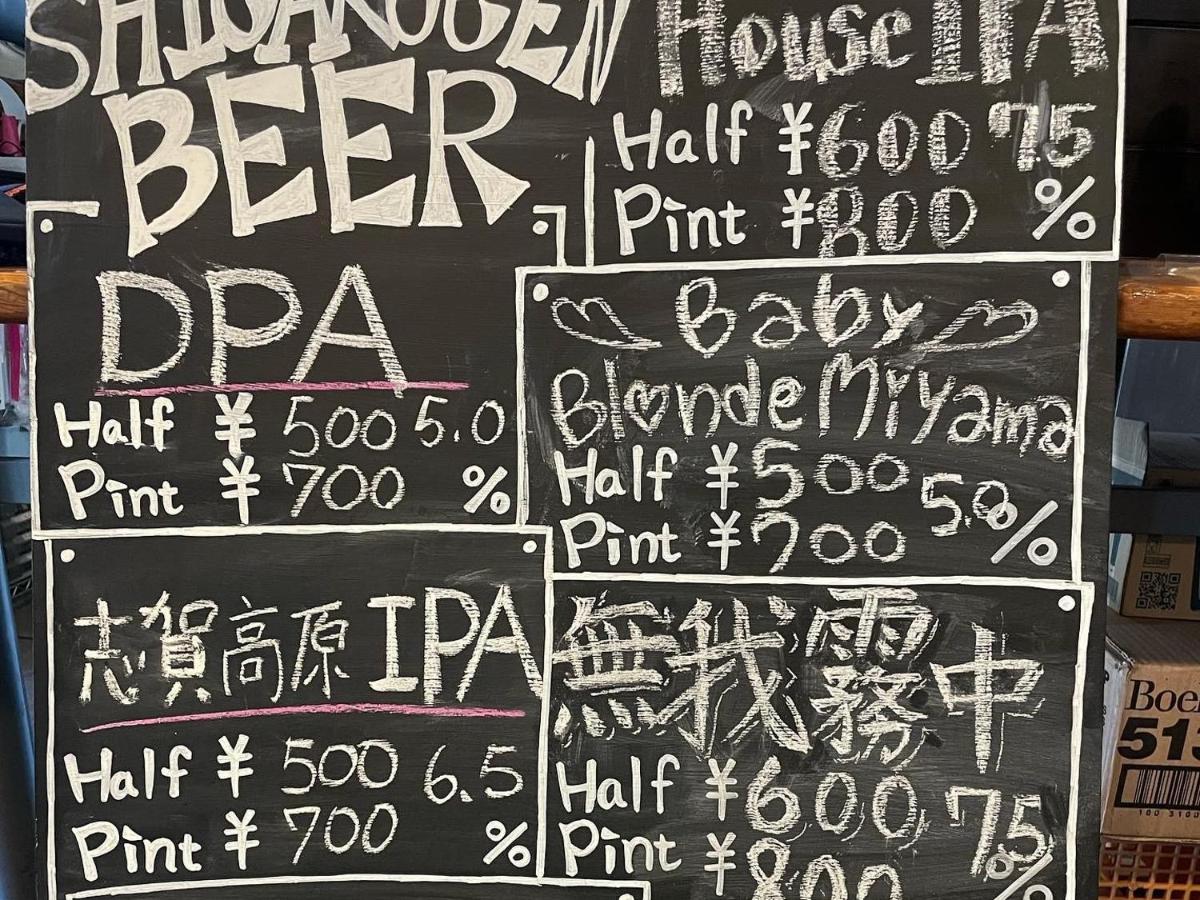 SHIGAKOGEN
BEER
House IPA
Half ¥600 7.5
Pint ¥800 %
DPA
Half ¥ 500 5.0
Pint ¥ 700 %
Baby
Blonde Miyama
Half ¥500
5.0%
Pint ¥700
志賀高原 IPA
Half ¥ 500 6.5
Pint ¥ 700 %
無我霧中
Half ¥600 7.5
Pint ¥800 %
Boe
513